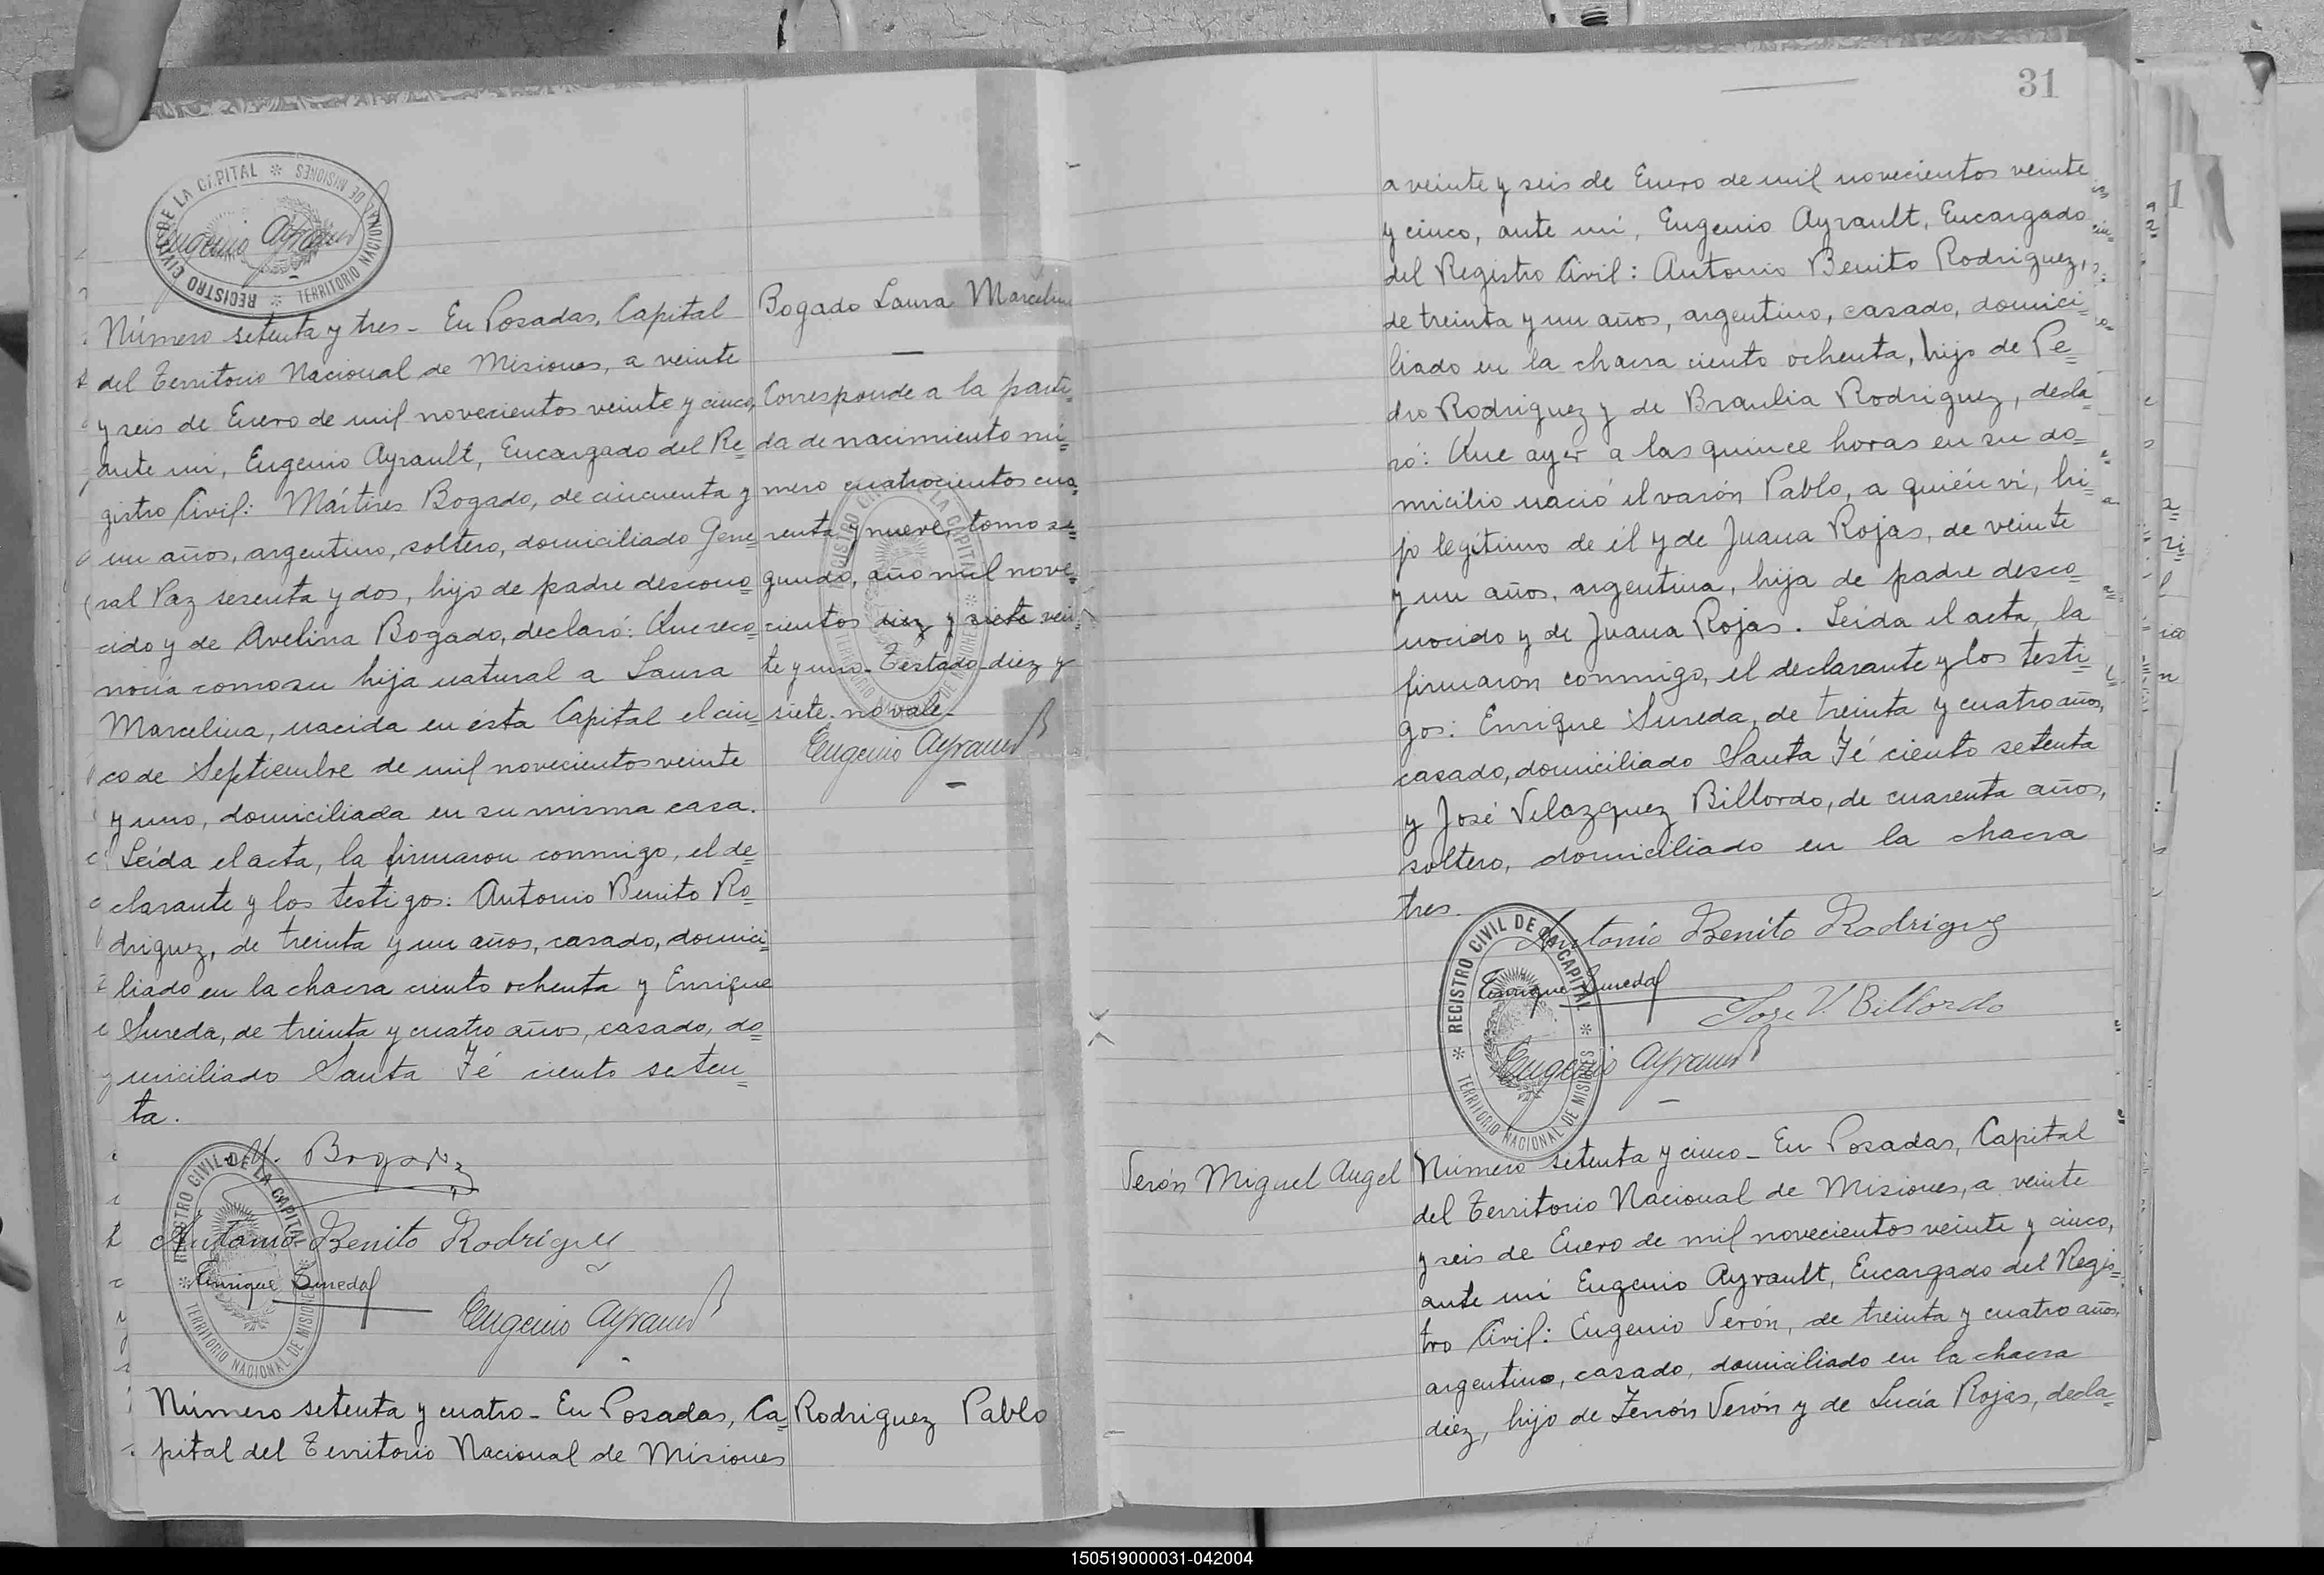 REGISTRO CIVIL DE LA CAPITAL * TERRITORIO NACIONAL DE MISIONES *
Eugenio Ayrault
Número setenta y tres - En Posadas, Capital
del Territorio Nacional de Misiones, a veinte
y seis de Enero de mil novecientos veinte y cinco,
ante mi, Eugenio Ayrault, Encargado del Re=
gistro Civil: Mártires Bogado, de cincuenta y
un años, argentino, soltero, domiciliado Gene=
ral Paz sesenta y dos, hijo de padre descono=
cido y de Avelina Bogado, declaró: Que reco=
nocía como su hija natural a Laura
Marcelina, nacida en ésta Capital el cin=
co de Septiembre de mil novecientos veinte
y uno, domiciliada en su misma casa.
Leída el acta, la firmaron conmigo, el de=
clarante y los testigos: Antonio Benito Ro=
driguez, de treinta y un años, casado, domici=
liado en la chacra ciento ochenta y Enrique
Sureda, de treinta y cuatro años, casado, do=
miciliado Santa Fé ciento seten=
ta.
M. Bogado
Antonio Benito Rodríguez
Enrique Sureda
Eugenio Ayrault
REGISTRO CIVIL DE LA CAPITAL * TERRITORIO NACIONAL DE MISIONES *
Bogado Laura Marcelina
Corresponde a la parti=
da de nacimiento nú=
mero cuatrocientos cua=
renta y nueve, tomo se=
gundo, año mil nove=
cientos diez y siete vein=
te y uno - Testado - diez y
siete - no vale -
Eugenio Ayrault
REGISTRO CIVIL DE LA CAPITAL * TERRITORIO NACIONAL DE MISIONES *
Número setenta y cuatro - En Posadas, Ca=
pital del Territorio Nacional de Misiones
Rodriguez Pablo
31
a veinte y seis de Enero de mil novecientos veinte
y cinco, ante mi, Eugenio Ayrault, Encargado
del Registro Civil: Antonio Benito Rodriguez,
de treinta y un años, argentino, casado, domici=
liado en la chacra ciento ochenta, hijo de Pe=
dro Rodriguez y de Braulia Rodriguez, decla=
ró: Que ayer a las quince horas en su do=
micilio nació el varón Pablo, a quién ví, hi=
jo legítimo de él y de Juana Rojas, de veinte
y un años, argentina, hija de padre desco=
nocido y de Juana Rojas. Leída el acta, la
firmaron conmigo, el declarante y los testi=
gos: Enrique Sureda, de treinta y cuatro años,
casado, domiciliado Santa Fé ciento setenta
y José Velazquez Billordo, de cuarenta años,
soltero, domiciliado en la chacra
tres.
Antonio Benito Rodríguez
Enrique Sureda
Jose V. Billordo
Eugenio Ayrault
REGISTRO CIVIL DE LA CAPITAL * TERRITORIO NACIONAL DE MISIONES *
Verón Miguel Angel
Número setenta y cinco - En Posadas, Capital
del Territorio Nacional de Misiones, a veinte
y seis de Enero de mil novecientos veinte y cinco,
ante mi Eugenio Ayrault, Encargado del Regis=
tro Civil: Eugenio Verón, de treinta y cuatro años,
argentino, casado, domiciliado en la chacra
diez, hijo de Verón y de Lucía Rojas, decla=
150519000031-042004